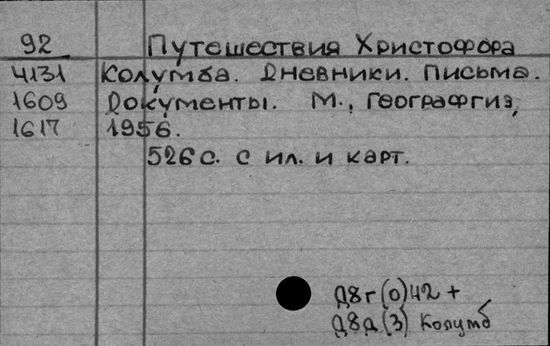 92 Путешествия Христофора
4131 Колумба. Дневники. Письма.
1609 Документы. М., Географгиз,
1617 1956.
526 с. с ил. и карт.
Д8г(0)42 +
Д8д(3) Колумб